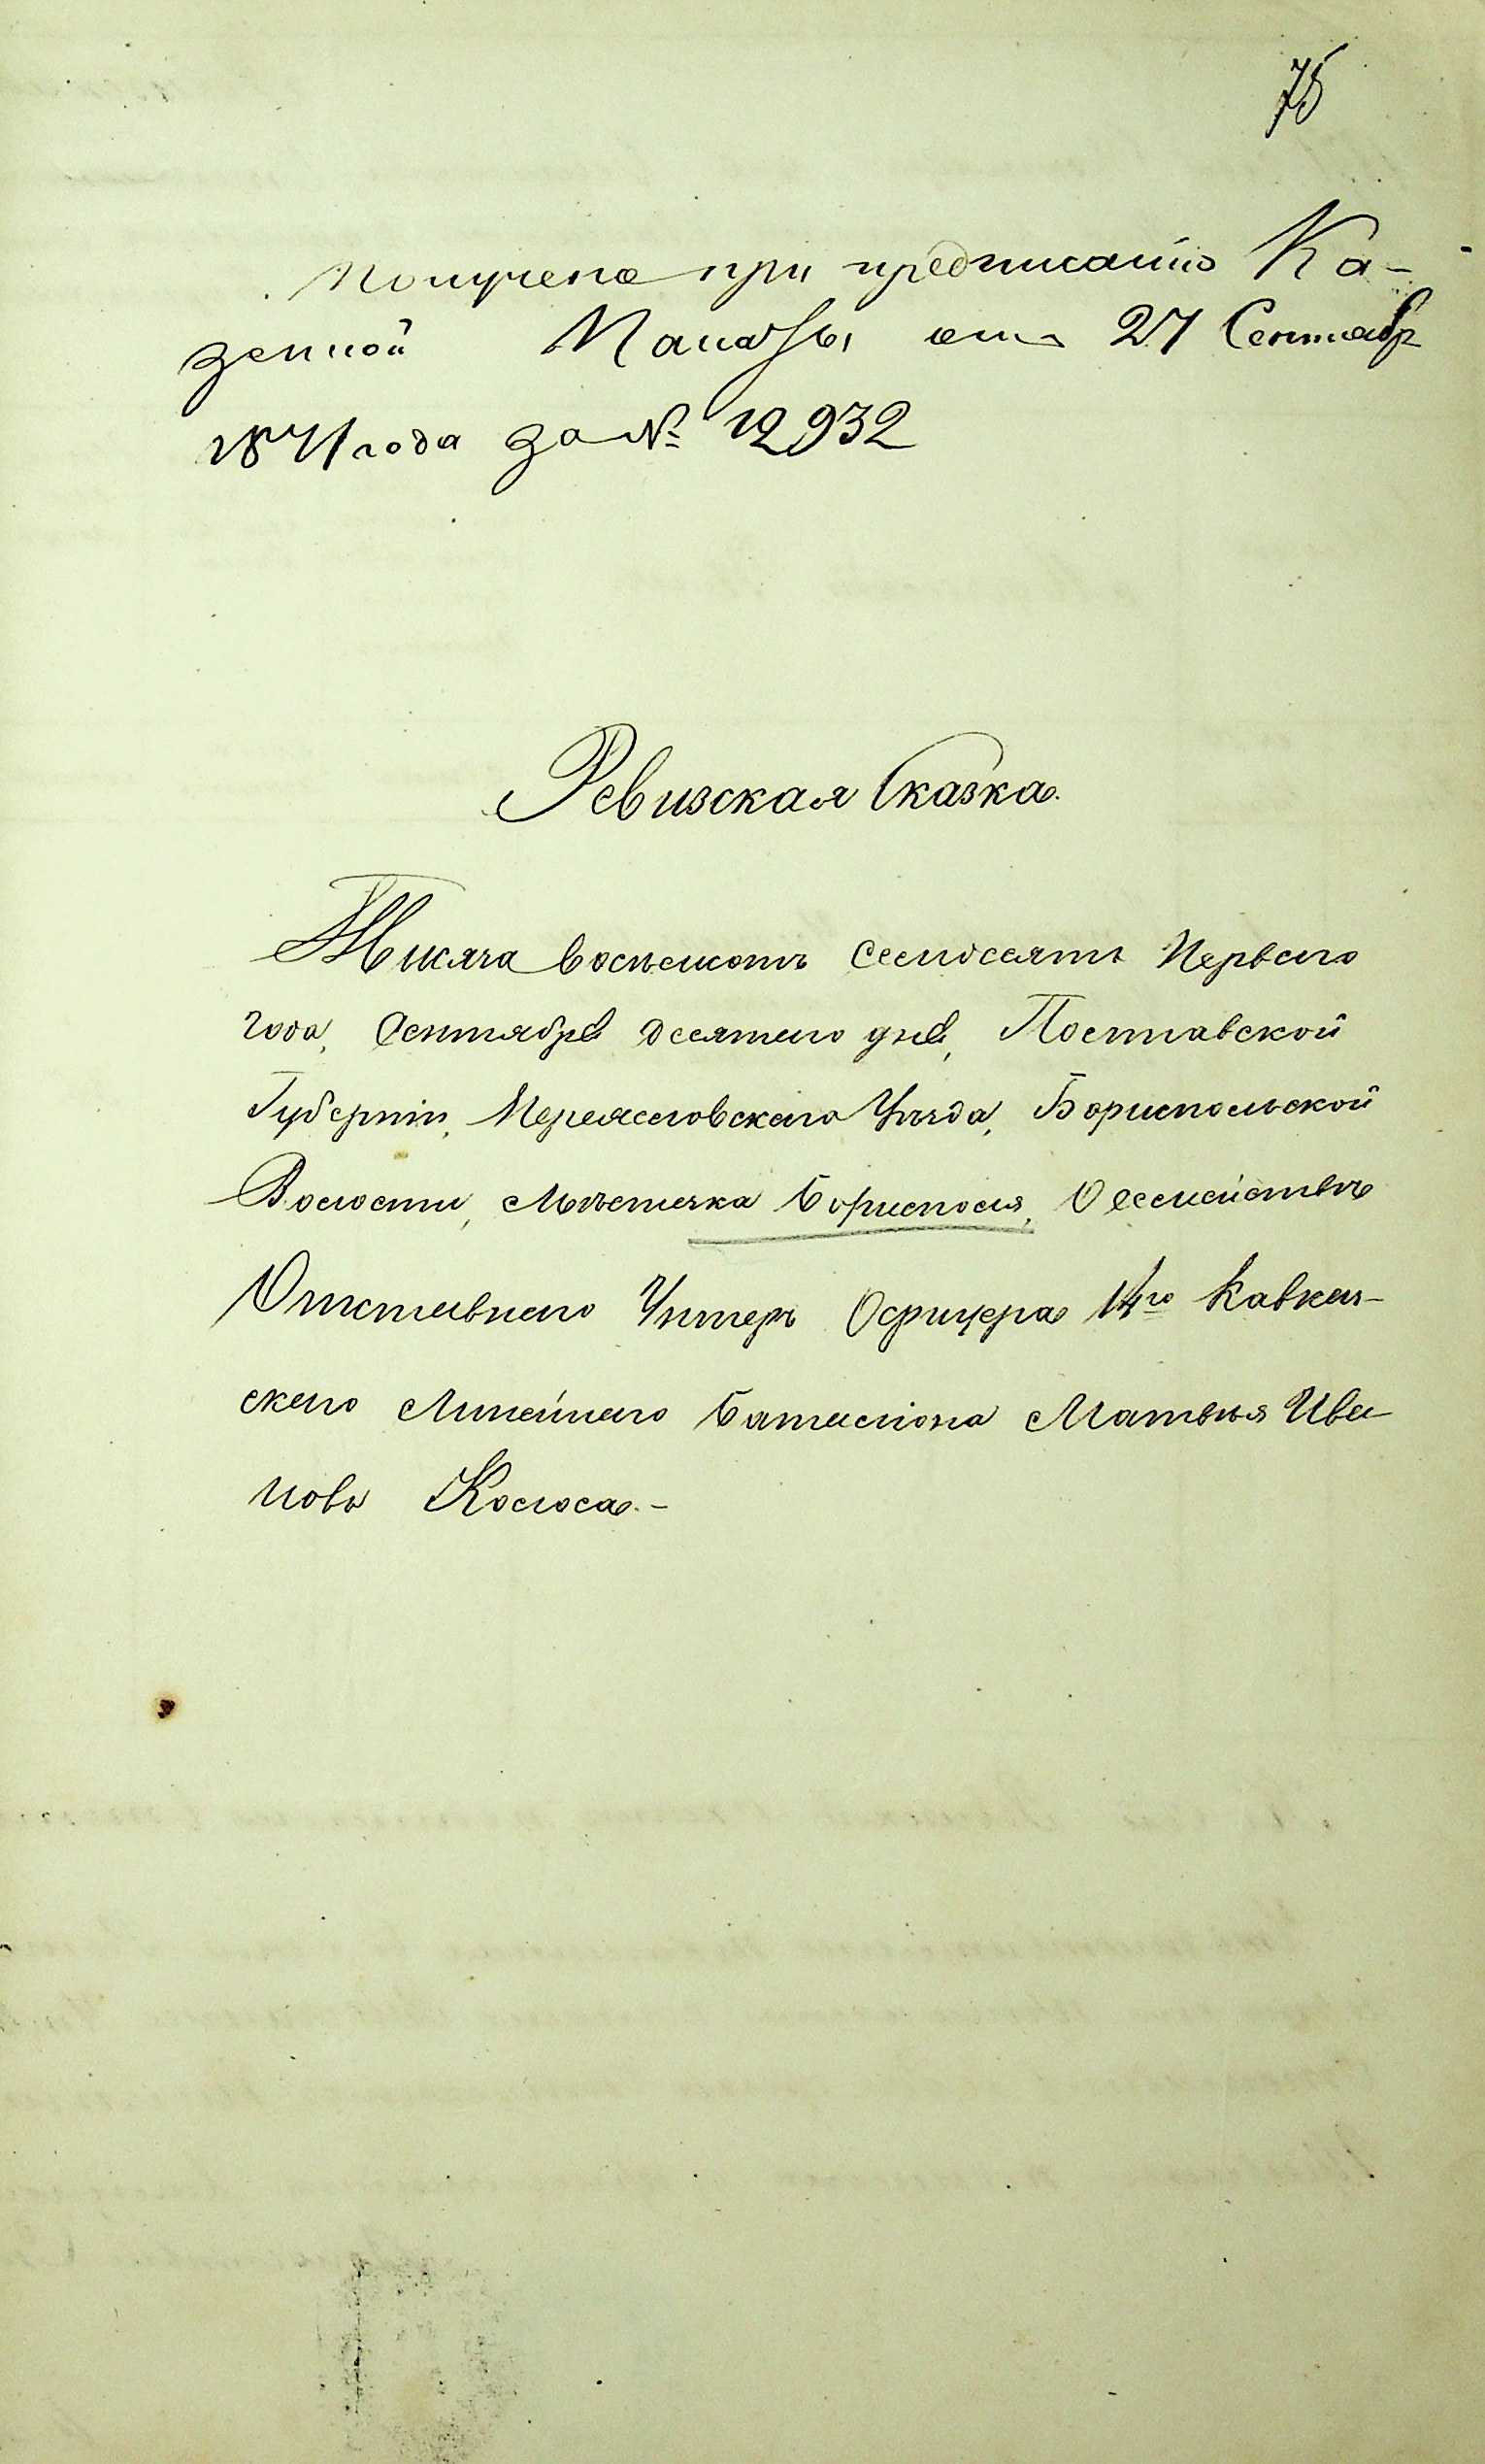 75
Получена при предписанiи Ка-
зенной Палаты отъ 27 Сентябр
1871 года за № 12932
Ревизская Сказка.
Тысяча восемсотъ семдесятъ Перваго
года, Сентября десятаго дня, Полтавской
Губернiи, Переяславскаго Уѣзда, Бориспольской
Волости, Мѣстечка Борисполя, О семействѣ
Отставнаго Унтеръ Офицера 14го Кавказ-
скаго Линейнаго Баталiона Матвѣя Ива-
нова Колоса.-